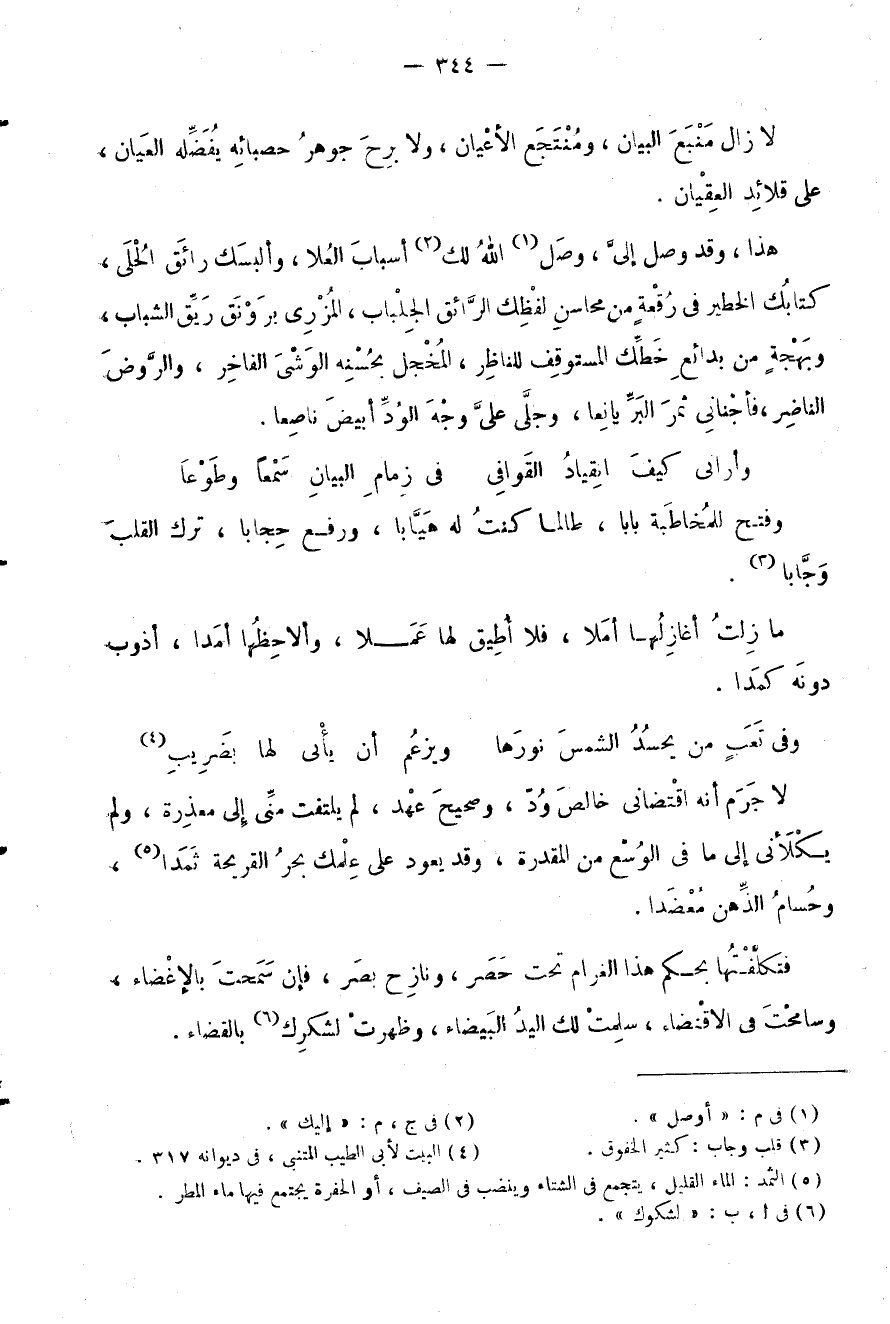 — ٣٤٤ —
لا زال مَنْبَعَ البيان ، ومُنْتَجَع الأعْيان ، ولا برِحَ جوهرُ حصبائِه يُفَضِّله العَيان ،
على قلائِد العِقْيان .
هذا ، وقد وصل إلىَّ ، وصَل(١) اللهُ لك(٢) أسبابَ العُلا ، وألبسَك رائقَ الحُلَى ،
كتابُك الخطير فى رُقْعةٍ من محاسنِ لفْظِك الرَّائق الجِلْباب ، المُزْرِى برَوْنَق رَيِّق الشباب ،
وبَهْجةٍ من بدائع خَطِّك المستوقِف للناظِر ، المُخْجل بحُسْنِه الوَشْىَ الفاخِر ، والرَّوضَ
الناضِر ، فأجْنانِي ثمرَ البَرِّ يانِعا ، وجلَّى علىَّ وجْهَ الوُدِّ أبيضَ ناصِعا .
وأرانى كيفَ انقِيادُ القَوافِي فى زِمامِ البيانِ سَمْعاً وطَوْعَا
وفتح للمُخاطَبة بابا ، طالما كنتُ له هَيَّابا ، ورفع حِجابا ، ترك القلبَ
وَجَّابا(٣) .
ما زِلتُ أغازِلُها أملا ، فلا أُطِيق لها عَمَلا ، وألاحِظُها أمَدا ، أذوب
دونَه كمَدا .
وفى تَعَبٍ من يحسُدُ الشمسَ نورَها ويزعُم أن يأْتى لها بضَرِيبِ(٤)
لا جَرَم أنه اقْتضانى خالصَ وُدّ ، وصحيحَ عهْد ، لم يلتفت منِّى إلى معذِرة ، ولم
يكْلَأْنى إلى ما فى الوُسْع من المقدرة ، وقد يعود على عِلْمك بحرُ القريحة ثَمَدا(٥) ،
وحُسامُ الذِّهن مُعْضَدا .
فتكلَّفْتُها بحكم هذا الغرام تحت حَصَر ، ونازِح بصَر ، فإن سَمَحتَ بالإغْضاء ،
وسامحْتَ فى الاقْتضاء ، سلِمتْ لك اليدُ البَيضاء ، وظهرتْ لشكرِك(٦) بالقضاء .
(١) فى م : « أوصل » . (٢) فى ج ، م : « إليك » .
(٣) قلب وجاب : كثير الخفوق . (٤) البيت لأبى الطيب المتنبى ، فى ديوانه ٣١٧ .
(٥) الثمد : الماء القليل ، يتجمع فى الشتاء وينضب فى الصيف ، أو الحفرة يجتمع فيها ماء المطر .
(٦) فى أ ، ب : « لشكوك » .